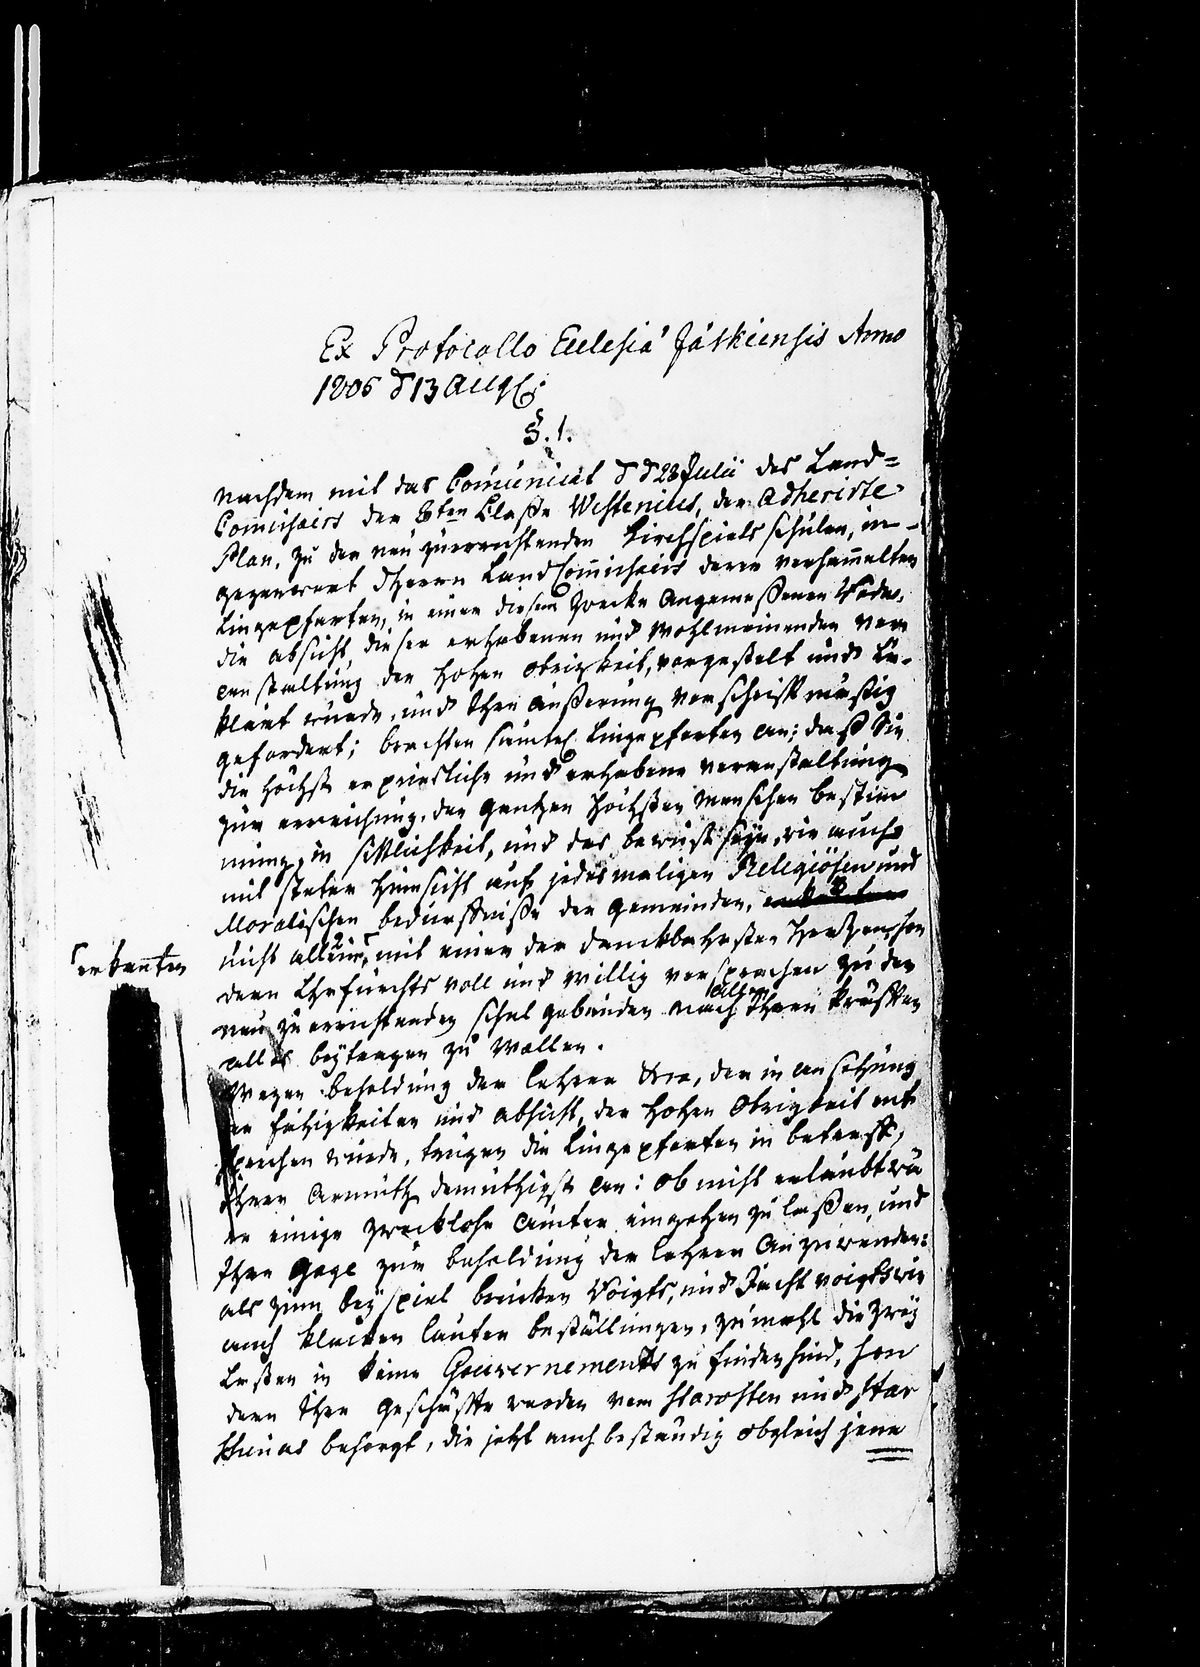 Ex Protocollo Ecclesiä Jääskiensis Anno
1805 d 13 Augl:
§. 1.
Nachdem mit das Comunicat d d 28 Julii des Land=
Comissairs der 8ten Classe Westenius, der Adherirte
Plan, zu der neu zuerrichtenden Kirchspiels schulen, in
gegenwart dHerrn Land Comissairs deren versammelten
Eingepfarten, in einer diesem Zwecke Angemeßenen Rede,
die absicht, dieser erhabenen und Wohlmeinenden Ver
anstaltung der hohen obrigkeit, vorgestelt und Er-
klärt wurde, und Ihre äußerung vorschriftmäßig
gefordert; brachten sämtl. Eingepfarten an; daß Sie
die höchst erpriesliche und erhabene veranstaltung
zur erreichung, der gantzen höchsten Menschen bestim
mung, in sittlichkeit, und des bewust seyn, wie auch
mit steter hinsicht auf jedesmaligen Religiösen und
Moralischen bedürfniße der Gemeinden,
⌈erkanten
nicht allein, mit einer der danckbahrsten Hertzen son
dern Ehrfurchts voll und willig versprachen zu der
allen
neu zu errichtenden schul gebäuden nach Ihren Kräfften
alles beytragen zu Wollen.
Wegen besoldung der lehrer, der in ansehung
der fähigkeiten und absicht, der hohen Obrigkeit ent
sprechen würde, trugen die Eingepfarten in betreff,
Ihrer Armuth demüthigst an: ob nicht erlaubt wä
re einige zwecklose Ämter eingehen zu laßen, und
Ihre Gage zur besoldung der lehrer Anzuwenden:
als zum beyspiel brücken Voigts, und Jacht voigts wie
auch klocken lauter beställungen, zumahl die zwey
Ersten in keine Gouvernements zu finden sind, son
dern Ihre Geschäffte werden vom Starosten und Star
schinas besorgt, die jetzt auch beständig obgleich jene